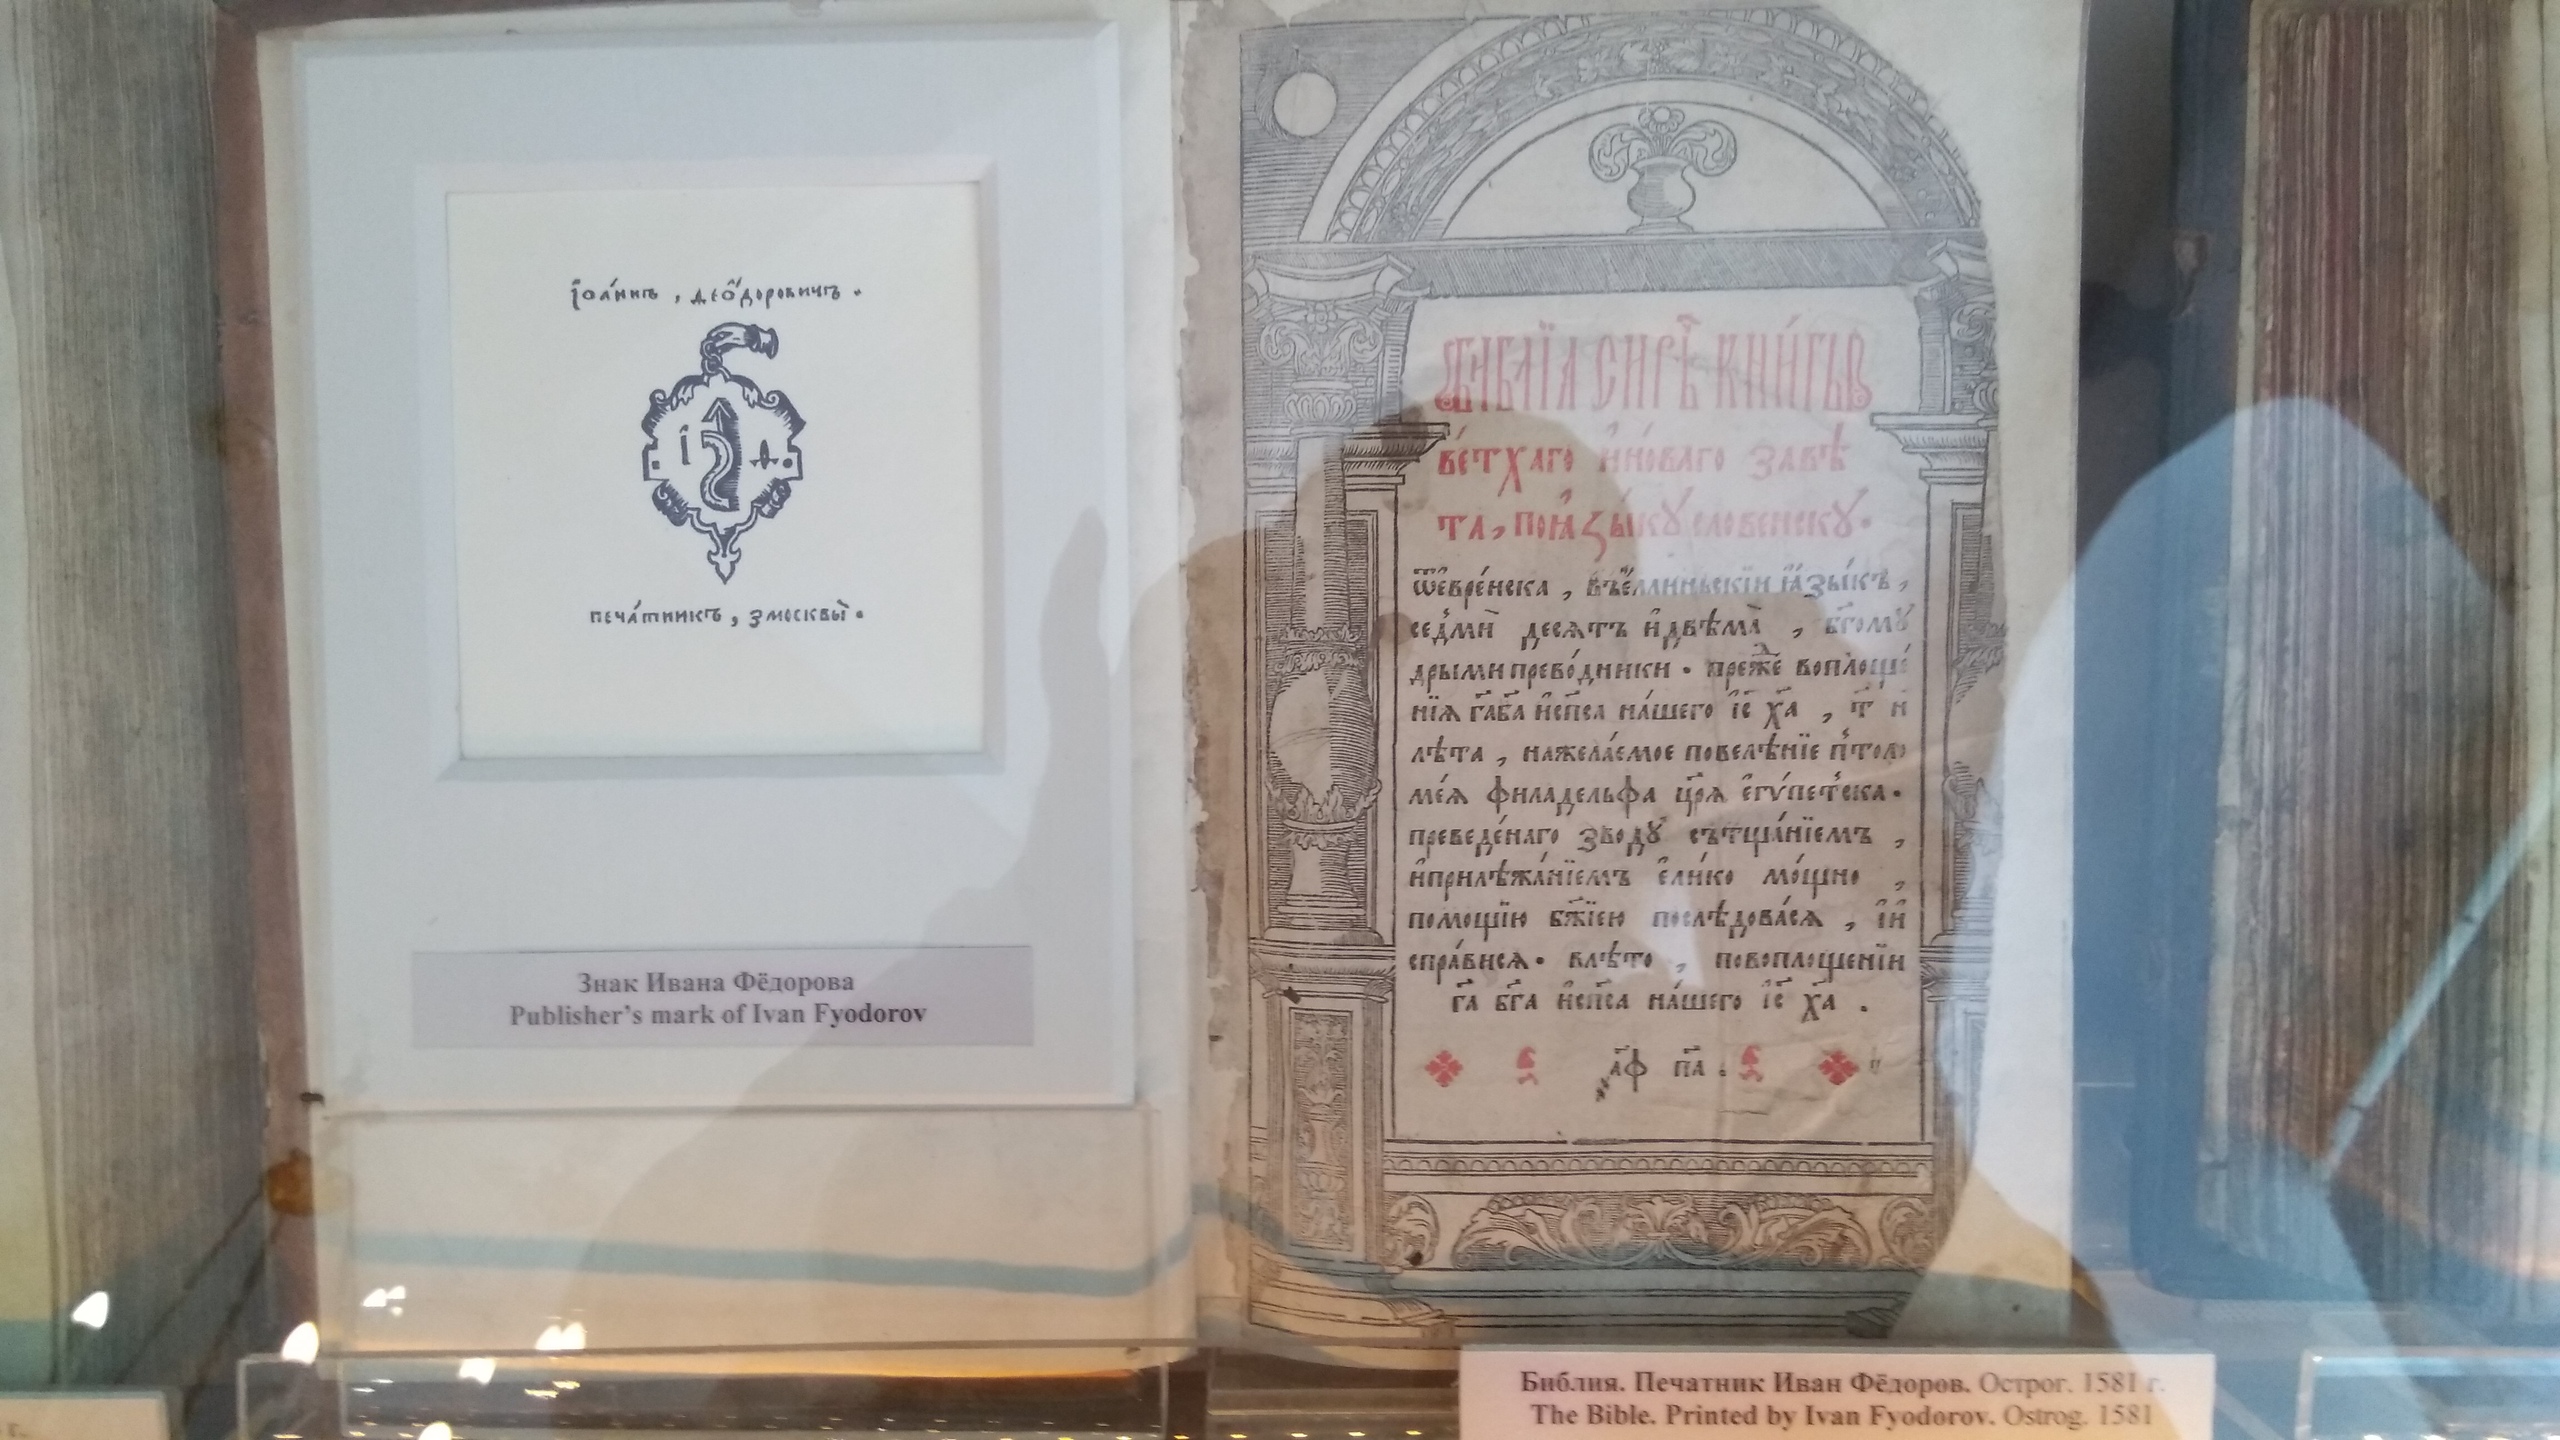 І҆ѡа́ннъ, Ѳео́доровичъ.
І Ѳ
печа́тникъ, змосквы̀.
Знак Ивана Фёдорова
Publisher's mark of Ivan Fyodorov
Би́блїа сирѣ̑ч кни́гы
ве́тхаго и҆но́ваго завѣ
та, поꙗ҆зы́кꙋ словенскꙋ.
ѿе҆вре́йска, въе҆́ллиньскїи ꙗ҆зы́къ,
се́дмⸯ десѧтъ и҆двѣма̀, бг҃омꙋ́
дрыми прево́дники. пре́же воплоще́
нїѧ гд҃а бг҃а и҆сп҃са на́шего і҆с҃ х҃а, т҃ и҆
лѣ́та, на жела́емое повелѣ́нїе п̾толо
ме́ѧ филадельфа цр҃ѧ е҆гѵ́петска.
преведе́наго зводꙋ̀ сътща́нїемъ,
и҆прилѣжа́нїемъ е҆ли́ко мо́щно,
помощїю бж҃їею послѣ́довасѧ, і҆и҆
спра́висѧ. влѣ́то, повоплоще́нїи
гд҃а бг҃а и҆сп҃са на́шего і҆с҃ х҃а.
҂а҃ф п҃а.
Библия. Печатник Иван Фёдоров. Острог. 1581 г.
The Bible. Printed by Ivan Fyodorov. Ostrog. 1581
г.